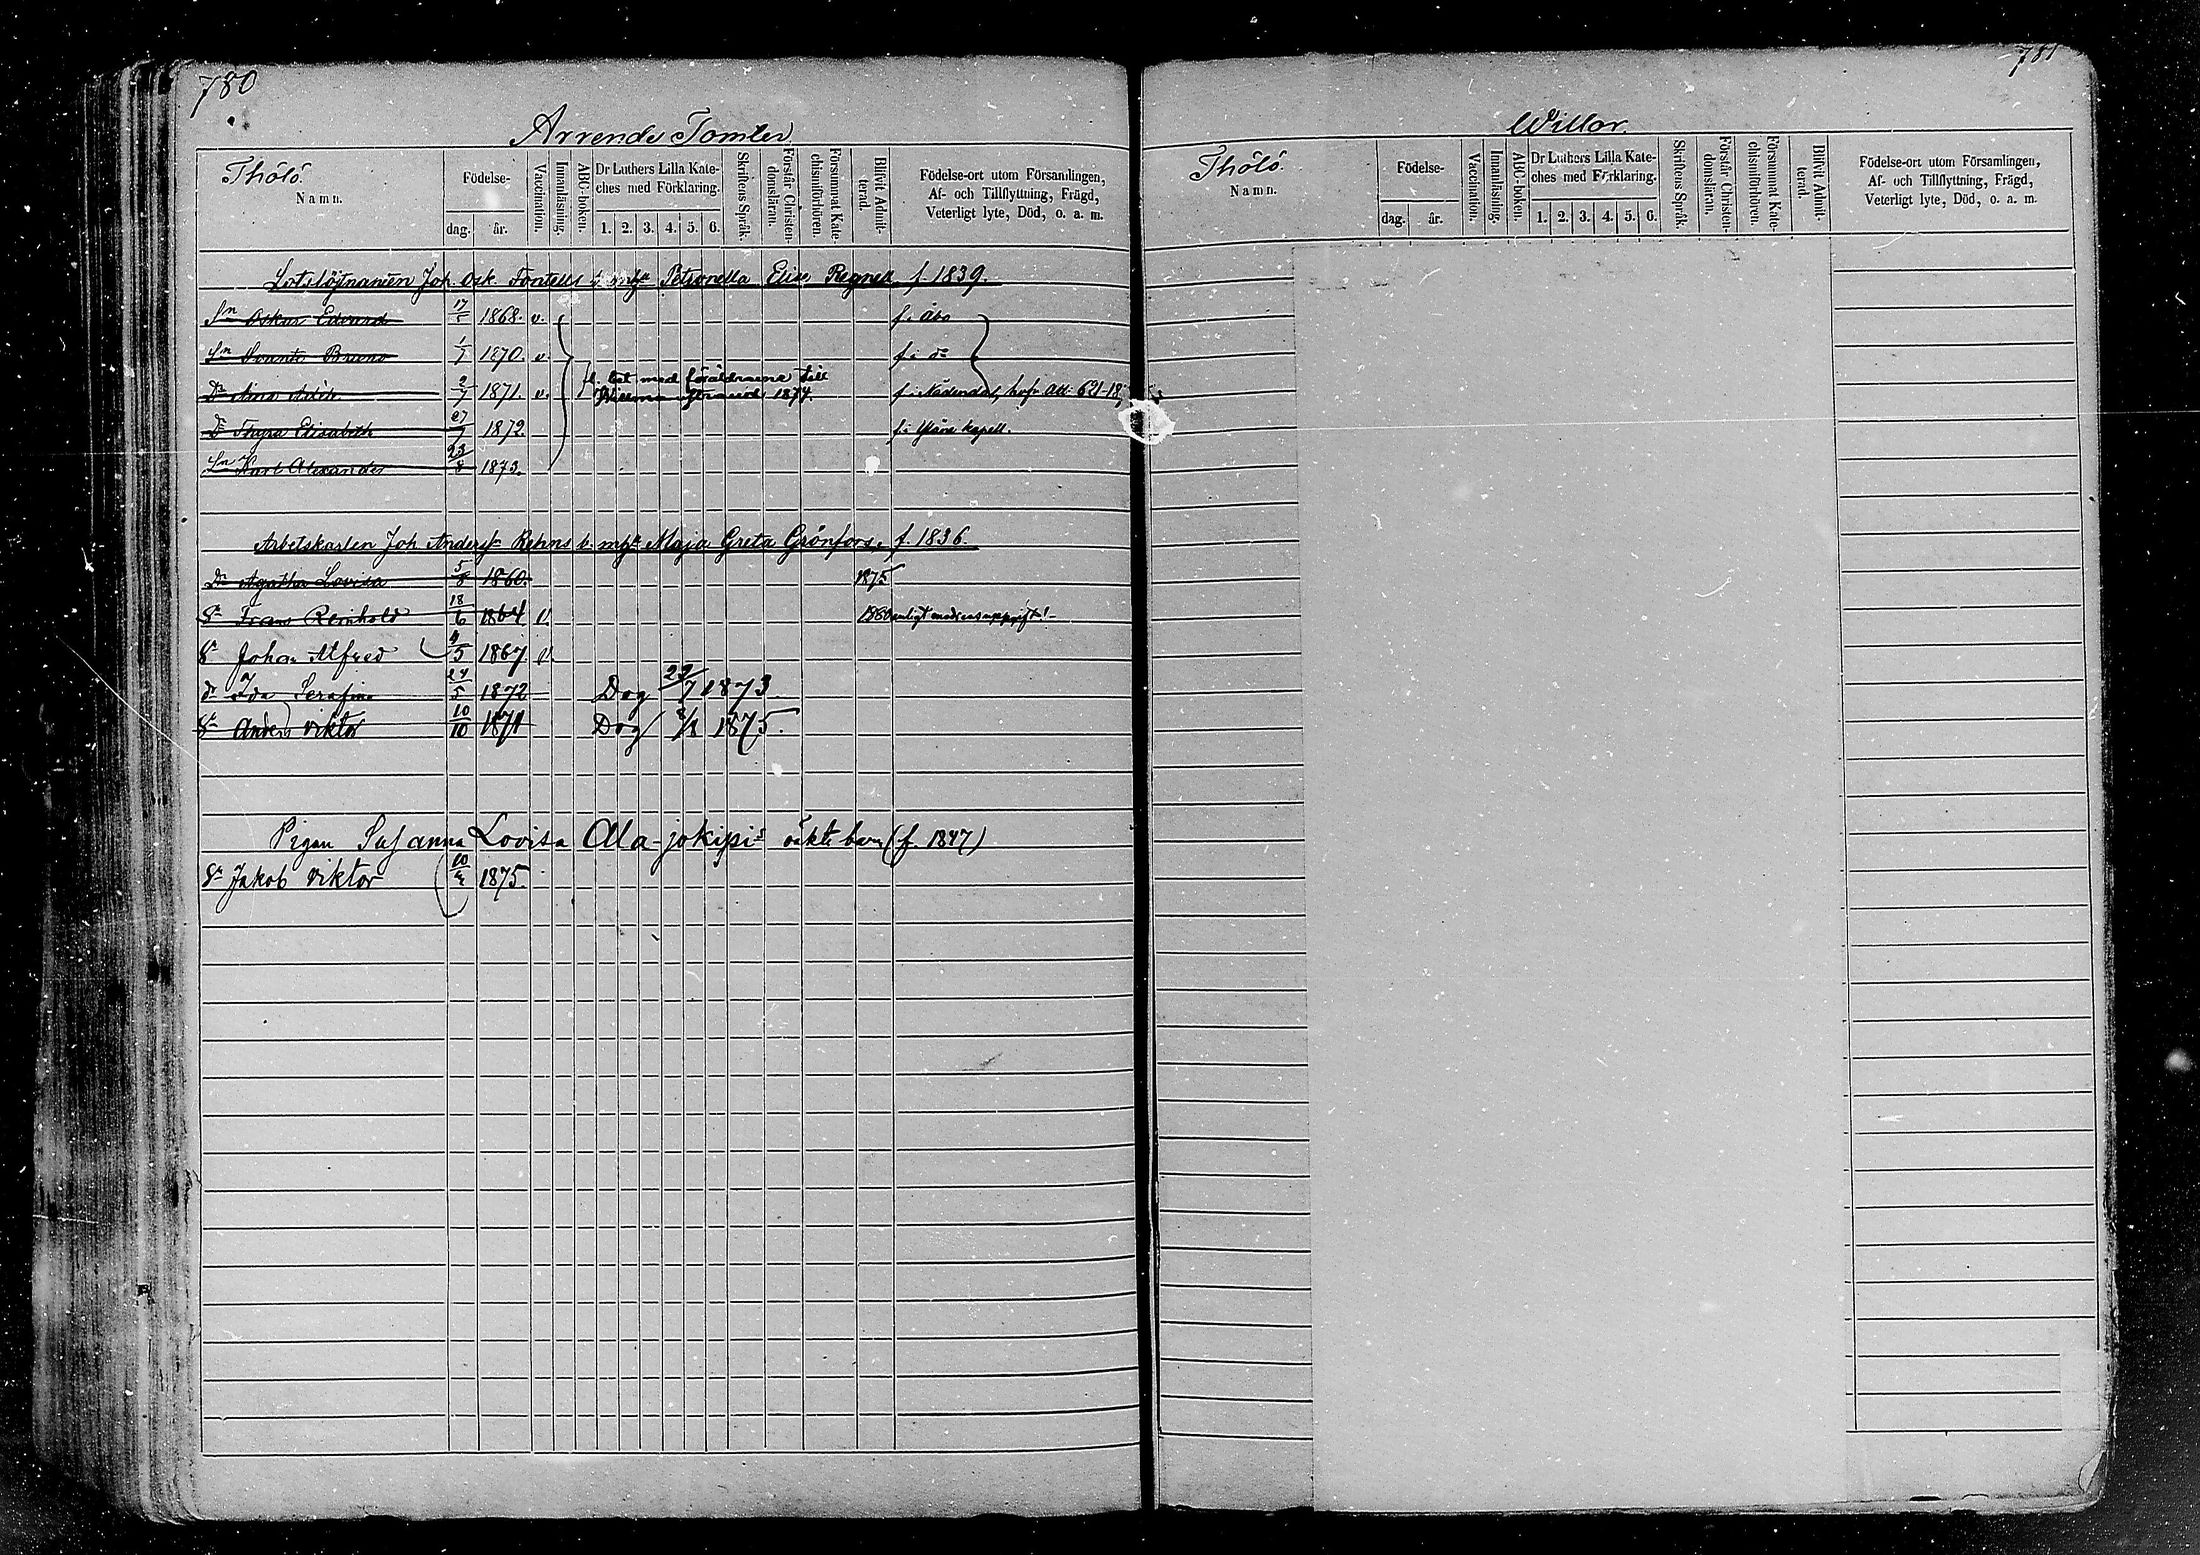 780
Arrende Tomter
Thölö.
Namn.
Födelse-
dag. år.
Vaccination.
Innanläsning.
ABC-boken.
Dr Luthers Lilla Kate-
ches med Förklaring.
1. 2. 3. 4. 5. 6.
Skriftens Språk.
Förstår Christen-
domsläran.
Försummat Kate-
chismiförhören.
Blifvit Admit-
terad.
Födelse-ort utom Församlingen,
Af- och Tillflyttning, Frägd,
Veterligt lyte, Död, o. a. m.
Lotslöjtnanten Joh. Osk. Fontells b. m/h Petronella Elise Regnell f. 1839.
Sn Oskar Edvard 17/5 1868. v. f. i Åbo
Sn Svante Bruno 1/7 1870. v. f. i do
Dr 2/7 1871. v. fl. bet. med föräldrarne till f. i Nådendal, 621-18
1874.
Dr Thyra Elisabeth 27/7 1872. f. i kapell.
Sn Karl Alexander 23/8 1873.
Arbetskarlen Joh Anders/n Rehns b. m/h Maja Greta Grönfors. f. 1836.
Dr Agatha Lovisa 5/8 1860. 1875
Sn Frans Reinhold 18/6 1864 v. 1880 enligt modrens uppgift!
Sn Johan Alfred 4/5 1867. v.
dr Ida Serafina 24/5 1872 Dog 23/7 1873.
Sn Anders Viktor 10/10 1871 Dog 1875.
Pigan Susanna Lovisa Ala-jokipis oäkta barn (f. 1847)
Sn Jakob Viktor 1875.
781
Willor.
Thölö.
Namn.
Födelse-
dag. år.
Vaccination.
Innanläsning.
ABC-boken.
Dr Luthers Lilla Kate-
ches med Förklaring.
1. 2. 3. 4. 5. 6.
Skriftens Språk.
Förstår Christen-
domsläran.
Försummat Kate-
chismiförhören.
Blifvit Admit-
terad.
Födelse-ort utom Församlingen,
Af- och Tillflyttning, Frägd,
Veterligt lyte, Död, o. a. m.